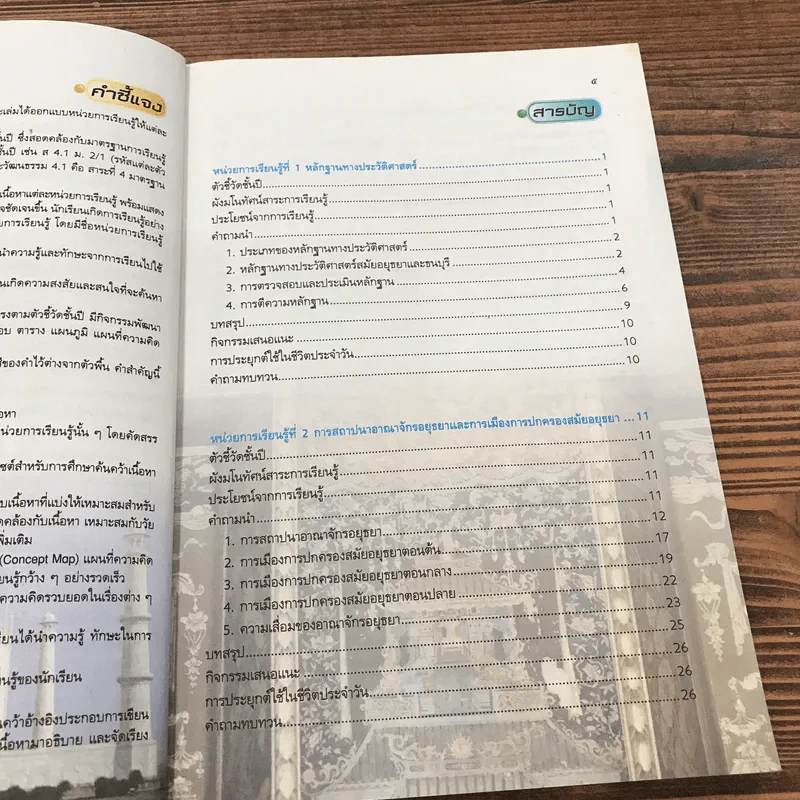 คำชี้แจง
ะเล่มได้ออกแบบหน่วยการเรียนรู้ให้แต่ละ
ั้นปี ซึ่งสอดคล้องกับมาตรฐานการเรียนรู้
ั้นปี เช่น ส 4.1 ม. 2/1 (รหัสแต่ละตัว
ะวัฒนธรรม 4.1 คือ สาระที่ 4 มาตรฐาน
เนื้อหาแต่ละหน่วยการเรียนรู้ พร้อมแสดง
จชัดเจนขึ้น นักเรียนเกิดการเรียนรู้อย่าง
ยการเรียนรู้ โดยมีชื่อหน่วยการเรียนรู้
นำความรู้และทักษะจากการเรียนไปใช้
นเกิดความสงสัยและสนใจที่จะค้นหา
รงตามตัวชี้วัดชั้นปี มีกิจกรรมพัฒนา
อบ ตาราง แผนภูมิ แผนที่ความคิด
สีของคำไว้ต่างจากตัวพื้น คำสำคัญนี้
อหา
น่วยการเรียนรู้นั้น ๆ โดยคัดสรร
ซต์สำหรับการศึกษาค้นคว้าเนื้อหา
บเนื้อหาที่แบ่งให้เหมาะสมสำหรับ
ดคล้องกับเนื้อหา เหมาะสมกับวัย
พิ่มเติม
(Concept Map) แผนที่ความคิด
ยนรู้กว้าง ๆ อย่างรวดเร็ว
ความคิดรวบยอดในเรื่องต่าง ๆ
เรียนได้นำความรู้ ทักษะในการ
นรู้ของนักเรียน
นคว้าอ้างอิงประกอบการเขียน
เนื้อหามาอธิบาย และจัดเรียง
๕
สารบัญ
หน่วยการเรียนรู้ที่ 1 หลักฐานทางประวัติศาสตร์ 1
ตัวชี้วัดชั้นปี 1
ผังมโนทัศน์สาระการเรียนรู้ 1
ประโยชน์จากการเรียนรู้ 1
คำถามนำ 1
1. ประเภทของหลักฐานทางประวัติศาสตร์ 2
2. หลักฐานทางประวัติศาสตร์สมัยอยุธยาและธนบุรี 2
3. การตรวจสอบและประเมินหลักฐาน 4
4. การตีความหลักฐาน 6
บทสรุป 9
กิจกรรมเสนอแนะ 10
การประยุกต์ใช้ในชีวิตประจำวัน 10
คำถามทบทวน 10
หน่วยการเรียนรู้ที่ 2 การสถาปนาอาณาจักรอยุธยาและการเมืองการปกครองสมัยอยุธยา ... 11
ตัวชี้วัดชั้นปี 11
ผังมโนทัศน์สาระการเรียนรู้ 11
ประโยชน์จากการเรียนรู้ 11
คำถามนำ 11
1. การสถาปนาอาณาจักรอยุธยา 12
2. การเมืองการปกครองสมัยอยุธยาตอนต้น 17
3. การเมืองการปกครองสมัยอยุธยาตอนกลาง 19
4. การเมืองการปกครองสมัยอยุธยาตอนปลาย 22
5. ความเสื่อมของอาณาจักรอยุธยา 23
บทสรุป 25
กิจกรรมเสนอแนะ 26
การประยุกต์ใช้ในชีวิตประจำวัน 26
คำถามทบทวน 26